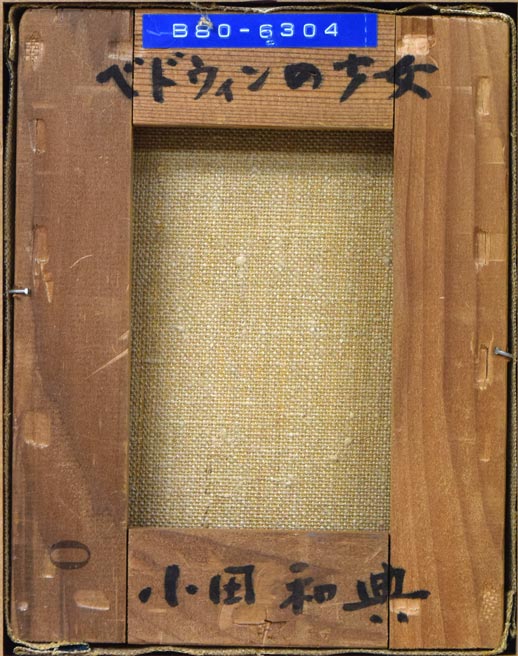 B80-6304
ベドウィンの少女
小田和典
0